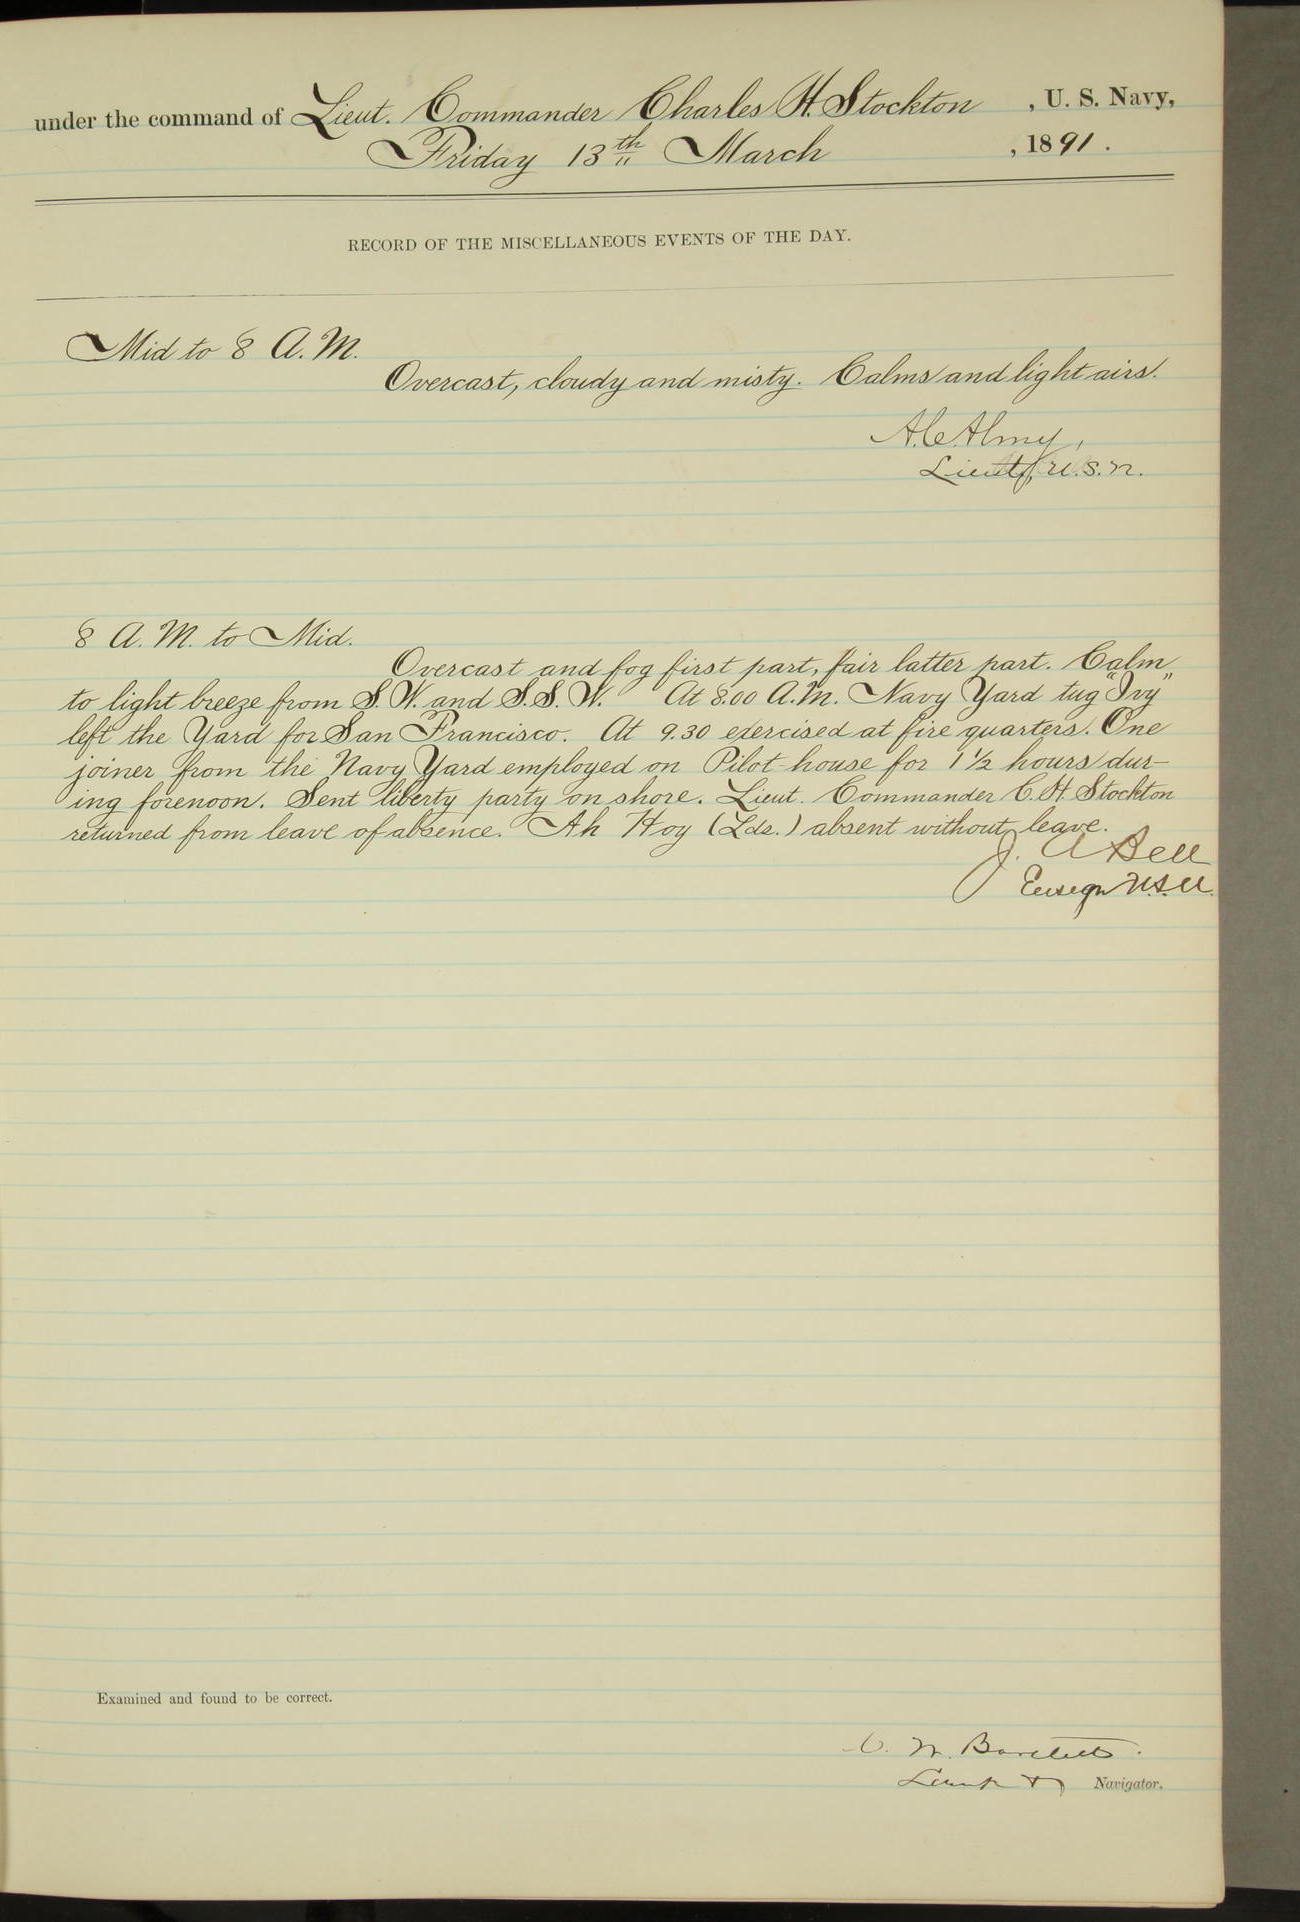 under the command of Lieut. Commander Charles H. Stockton, U. S. Navy,
Friday 13th March, 1891.
RECORD OF THE MISCELLANEOUS EVENTS OF THE DAY.
Mid to 8 A.M.
Overcast, cloudy and misty. Calms and light airs.
A.C. Almy,
Lieut, U.S.N.
8 A.M. to Mid.
Overcast and fog first part, fair latter part. Calm
to light breeze from S.W. and S.S.W. At 8.00 A.M. Navy Yard tug "Ivy"
left the Yard for San Francisco. At 9.30 exercised at fire quarters. One
joiner from the Navy Yard employed on Pilot-house for 1 1/2 hours dur-
ing forenoon. Sent liberty party on shore. Lieut. Commander C.H. Stockton
returned from leave of absence. Ah Hoy (Lds.) absent without leave.
J. A Bell
Ensign U.S.N.
Examined and found to be correct.
C. W. Bartlett.
Lieut & Navigator.